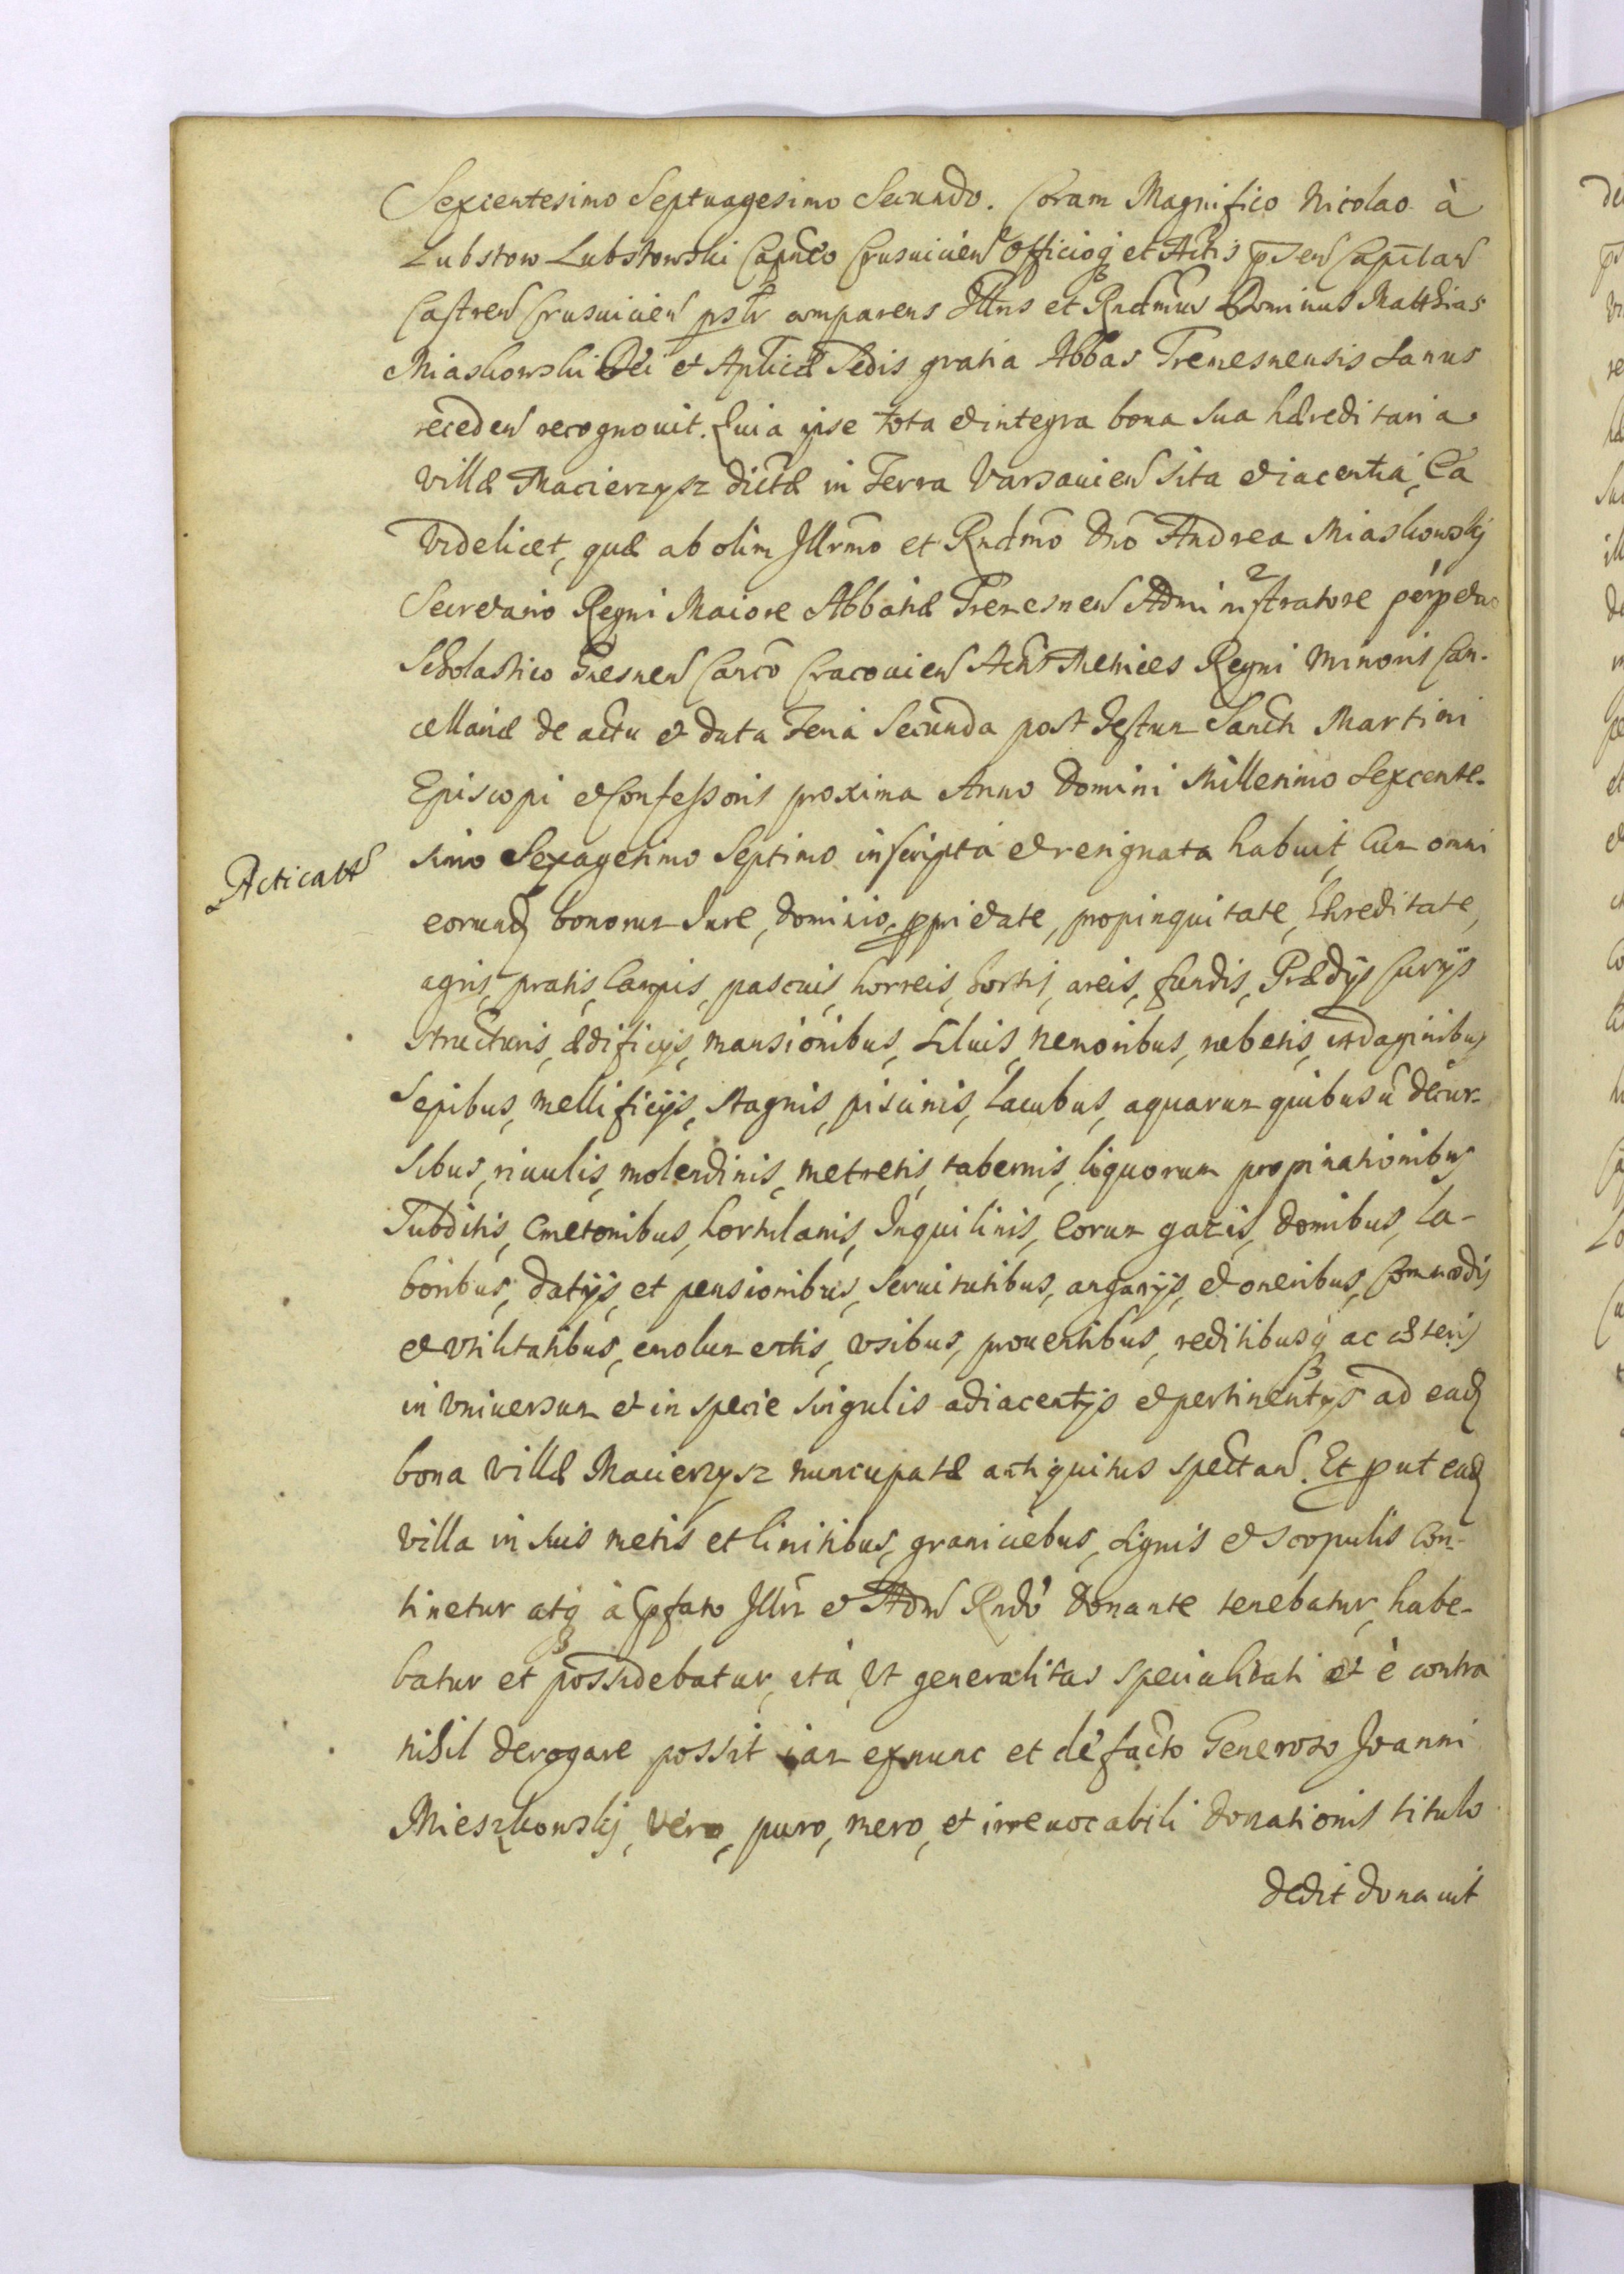 Sexcentesimo Septuagesimo Secundo. Coram Magnifico Nicolao à
Lubstow Lubstowski Capnéo Crusuicień Officioq et Actis pñseń Capitań
Castreń Crusuicień psltr comparens Illris et Rndmus Dominus Matthias
Miaskowski Dei et Aplicæ Sedis gratia Abbas Tremesnensis Sanus
receden recognouit. Quia ipse tota et integra bona sua hæreditaria
villæ Macierzysz dictæ in Terra Varsauień sita et iacentia, Ea
videlicet, quæ ab olim Illrmo et Rndmo Dno Andrea Miaskowskj
Secretario Regni Maiore Abbatiæ Tremesneń Administratore perpetuo
Scholastico Gnesneń Canco Cracouień Actis Metrices Regni Minoris Can-
cellariæ de actu et data Feria Secunda post Festum Sancti Martini
Episcopi et Confessoris proxima Anno Domini Millesimo Sexcente-
simo Sexagesimo Septimo inscripta et resignata habuit, Cum omni
Acticatt
eorund bonorum Iure, dominio, pprietate, propinquitate, Hæreditate,
agris, pratis, Campis, pascuis, horreis, hortis, areis, fundis, Prædijs Curijs
structuris, ædificijs, mansionibus, Siluis, nemoribus, rubetis, indaginibus
Sepibus, mellificijs, stagnis, piscinis, Lacubus, aquarum quibusuis decur-
sibus, riuulis, molendinis, metretis, tabernis, liquorum propinationibus
Subditis, Cmetonibus, hortulanis, Inquilinis, eorum gazis, domibus, La-
boribus, datijs, et pensionibus, Seruitutibus, angarijs, et oneribus, Commodis
et vtilitatibus, emolumentis, vsibus, prouentibus, reditibusq ac cæteris
in vniuersum et in specie singulis adiacentijs et pertinentijs ad ead
bona villæ Macierzysz nuncupatæ antiquitus spectań. Et put ead
villa in suis metis et limitibus, graniciebus, Signis et Scopulis Con-
tinetur atq à pfato Illri et Adm Rndo Donante tenebatur, habe-
batur et possidebatur, ita, vt generalitas specialitati et è contra
nihil derogare possit iam exnunc et de facto Generoso Joanni
Mieszkowskj, vero, puro, mero, et irreuocabili donationis titulo
dedit donauit